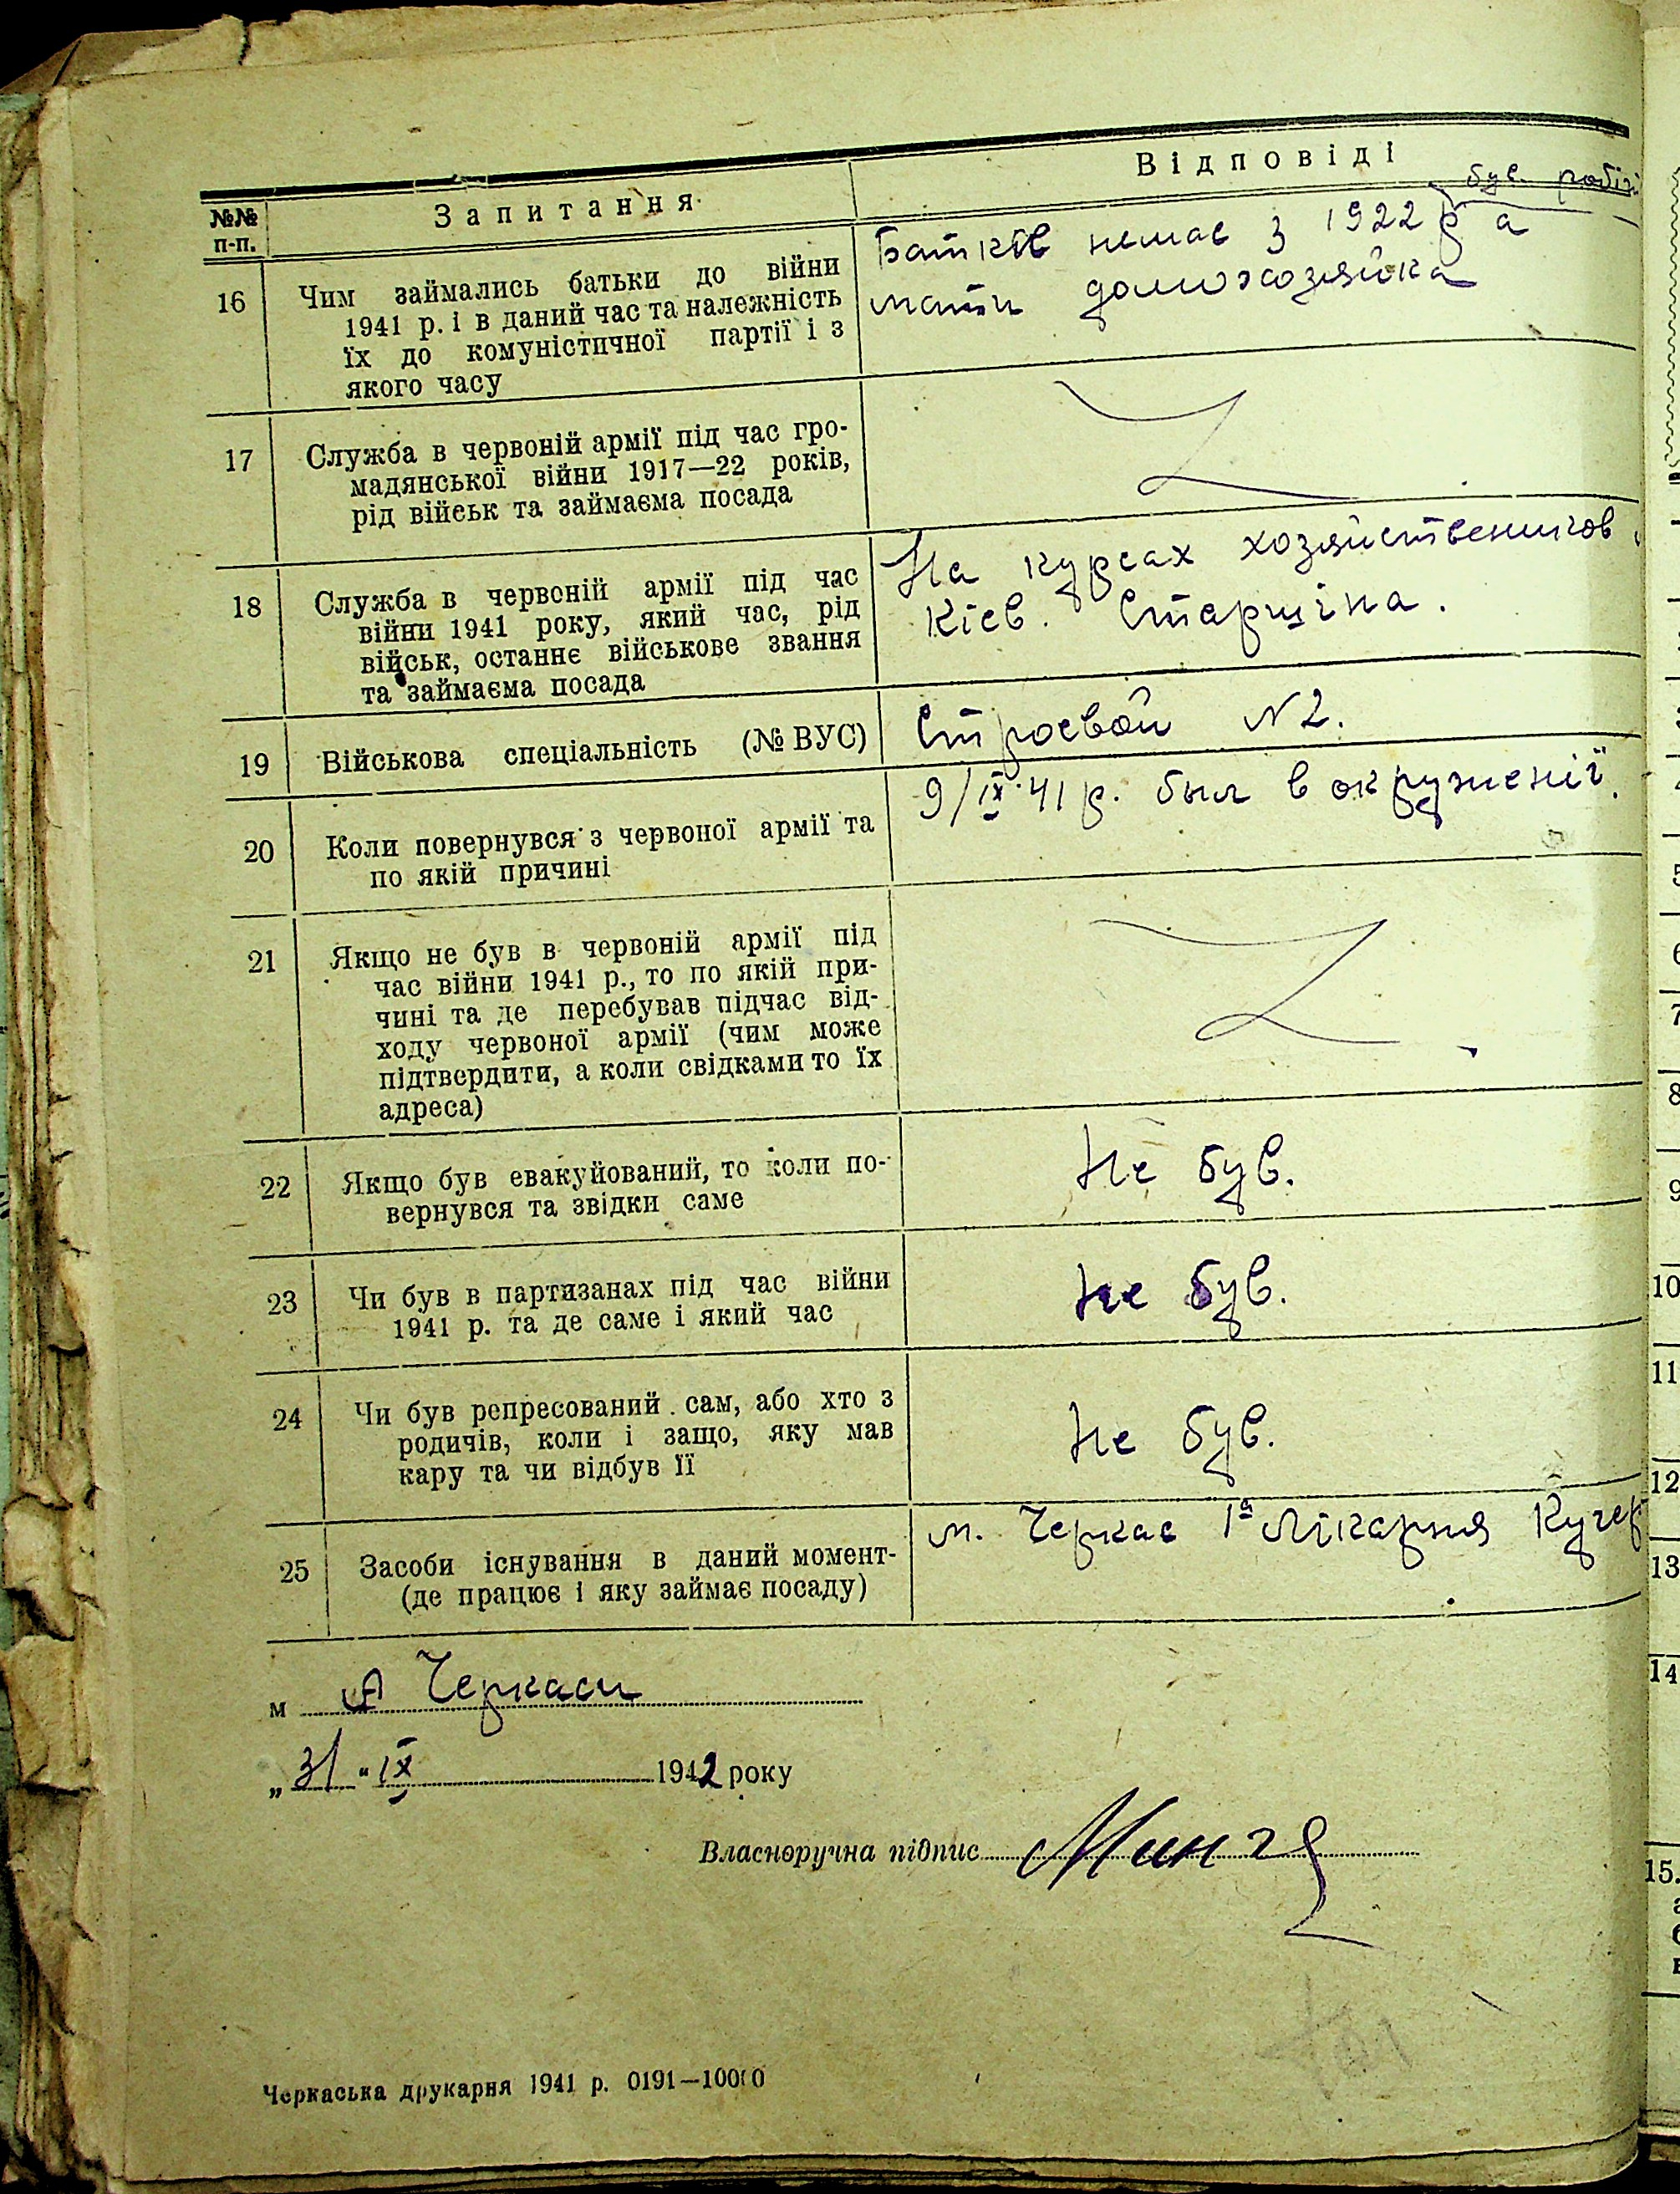 Відповіді
№№ п-п.
Запитання
був. робіт
Батьків немає з 1922 р а
мати домохозяйка
16 Чим займались батьки до війни
1941 р. і в даний час та належність
їх до комуністичної партії і з
якого часу
17 Служба в червоній армії під час гро-
мадянської війни 1917—22 років,
рід військ та займаєма посада
18 Служба в червоній армії під час
війни 1941 року, який час, рід
військ, останнє військове звання
та займаєма посада
На курсах хозяйственников
Кієв. Старшіна.
19 Військова спеціальність (№ ВУС)
Строевой N2.
20 Коли повернувся з червоної армії та
по якій причині
9/IX.41 р. был в окруженії.
21 Якщо не був в червоній армії під
час війни 1941 р., то по якій при-
чині та де перебував підчас від-
ходу червоної армії (чим може
підтвердити, а коли свідками то їх
адреса)
22 Якщо був евакуйований, то коли по-
вернувся та звідки саме
Не був.
23 Чи був в партизанах під час війни
1941 р. та де саме і який час
Не був.
24 Чи був репресований сам, або хто з
родичів, коли і защо, яку мав
кару та чи відбув її
Не був.
25 Засоби існування в даний момент-
(де працює і яку займає посаду)
м. Черкас 1а Лікарня Кучер
м Черкаси
„31" IX 1942 року
Власноручна підпис
Черкаська друкарня 1941 р. 0191—10000
5
6
7
8
9
10
11
12
13
14
15.